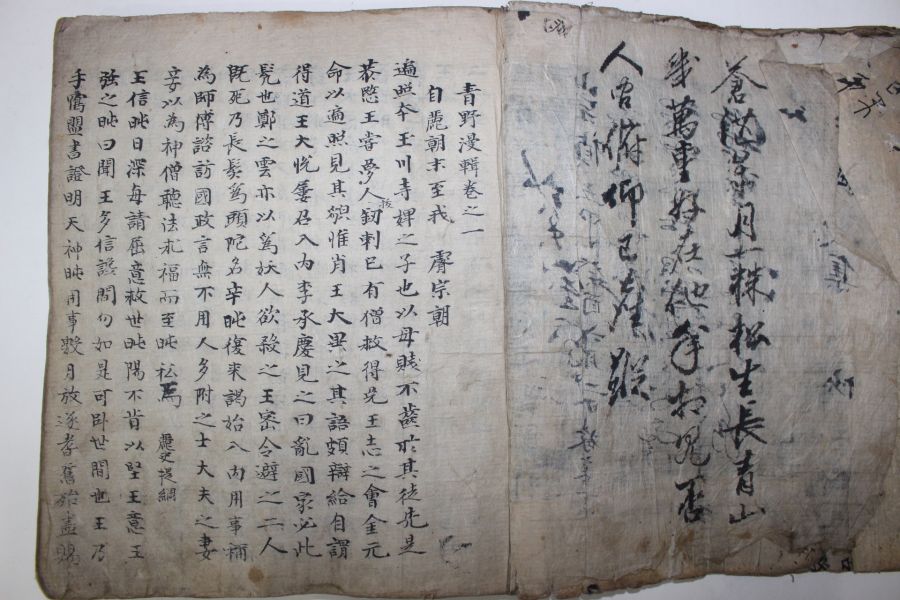 蒼月一株松生長青山
幾萬重好在他年相見否
人間俯仰已蹤
青野漫輯卷之一
自麗朝末至我 睿宗朝
遍照本玉川寺婢之子也以母賤不齒於其徒先是
恭愍王嘗夢人拔釰刺已有僧救得免王志之會金元
命以遍照見其貌惟肖王大異之其語頗辯給自謂
得道王大悅屢召入內李承慶見之曰亂國家必此
髡也鄭之雲亦以爲妖人欲殺之王密令避之二人
既死乃長髮爲頭陀名辛旽復來謁始入內用事稱
為師傅諮訪國政言無不用人多附之士大夫之妻
妾以為神僧聽法求福而至旽私焉 麗史提綱
王信旽日深每請屈意救世旽陽不肯以堅王意王
强之旽曰聞王多信讒間勿如是可卧世間也王乃
手寫盟書證明天神旽用事數月放逐耆舊殆盡賜